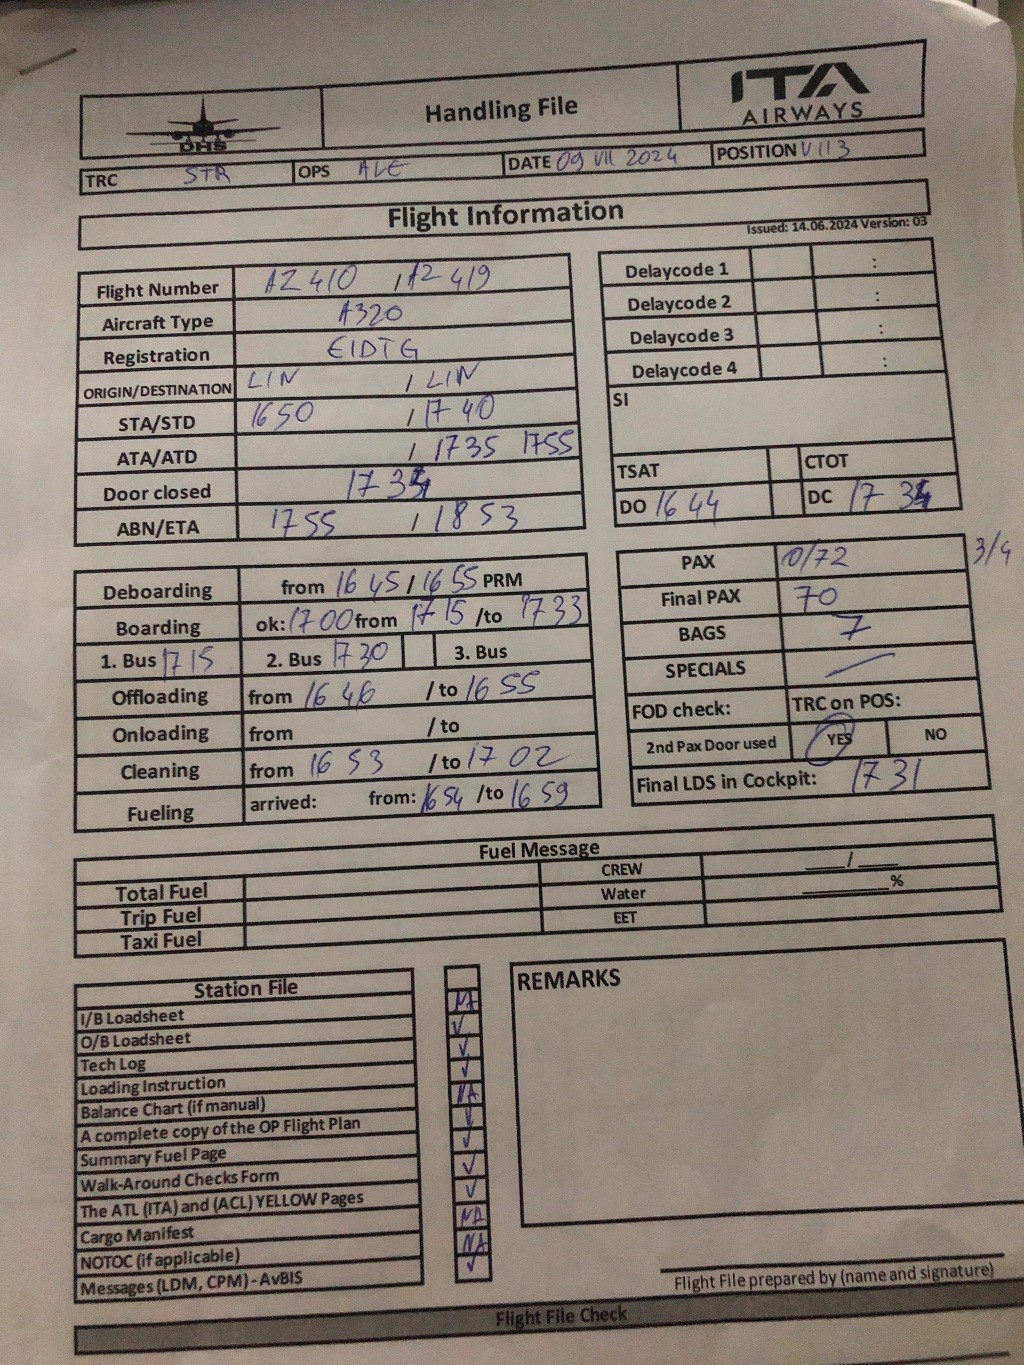 DHS
Handling File
ITA
AIRWAYS
TRC STR OPS ALE DATE 09 VII 2024 POSITION V113
Flight Information
Issued: 14.06.2024 Version: 03
Flight Number AZ 410 / AZ 419
Aircraft Type A320
Registration EIDTG
ORIGIN/DESTINATION LIN / LIN
STA/STD 1650 / 1740
ATA/ATD / 1735 1755
Door closed 1734
ABN/ETA 1755 / 1853
Delaycode 1 :
Delaycode 2 :
Delaycode 3 :
Delaycode 4 :
SI
TSAT CTOT
DO 1644 DC 1734
Deboarding from 1645 / 1655 PRM
Boarding ok: 1700 from 1715 /to 1733
1. Bus 1715 2. Bus 1730 3. Bus
Offloading from 1646 / to 1655
Onloading from / to
Cleaning from 1653 / to 1702
Fueling arrived: from: 1654 /to 1659
PAX 0/72 3/4
Final PAX 70
BAGS 7
SPECIALS
FOD check: TRC on POS:
2nd Pax Door used YES NO
Final LDS in Cockpit: 1731
Fuel Message
Total Fuel CREW ___/___
Trip Fuel Water ______%
Taxi Fuel EET
Station File
I/B Loadsheet NA
O/B Loadsheet ✓
Tech Log ✓
Loading Instruction ✓
Balance Chart (if manual) NA
A complete copy of the OP Flight Plan ✓
Summary Fuel Page ✓
Walk-Around Checks Form ✓
The ATL (ITA) and (ACL) YELLOW Pages ✓
Cargo Manifest NA
NOTOC (if applicable) NA
Messages (LDM, CPM) - AvBIS ✓
REMARKS
Flight File prepared by (name and signature)
Flight File Check